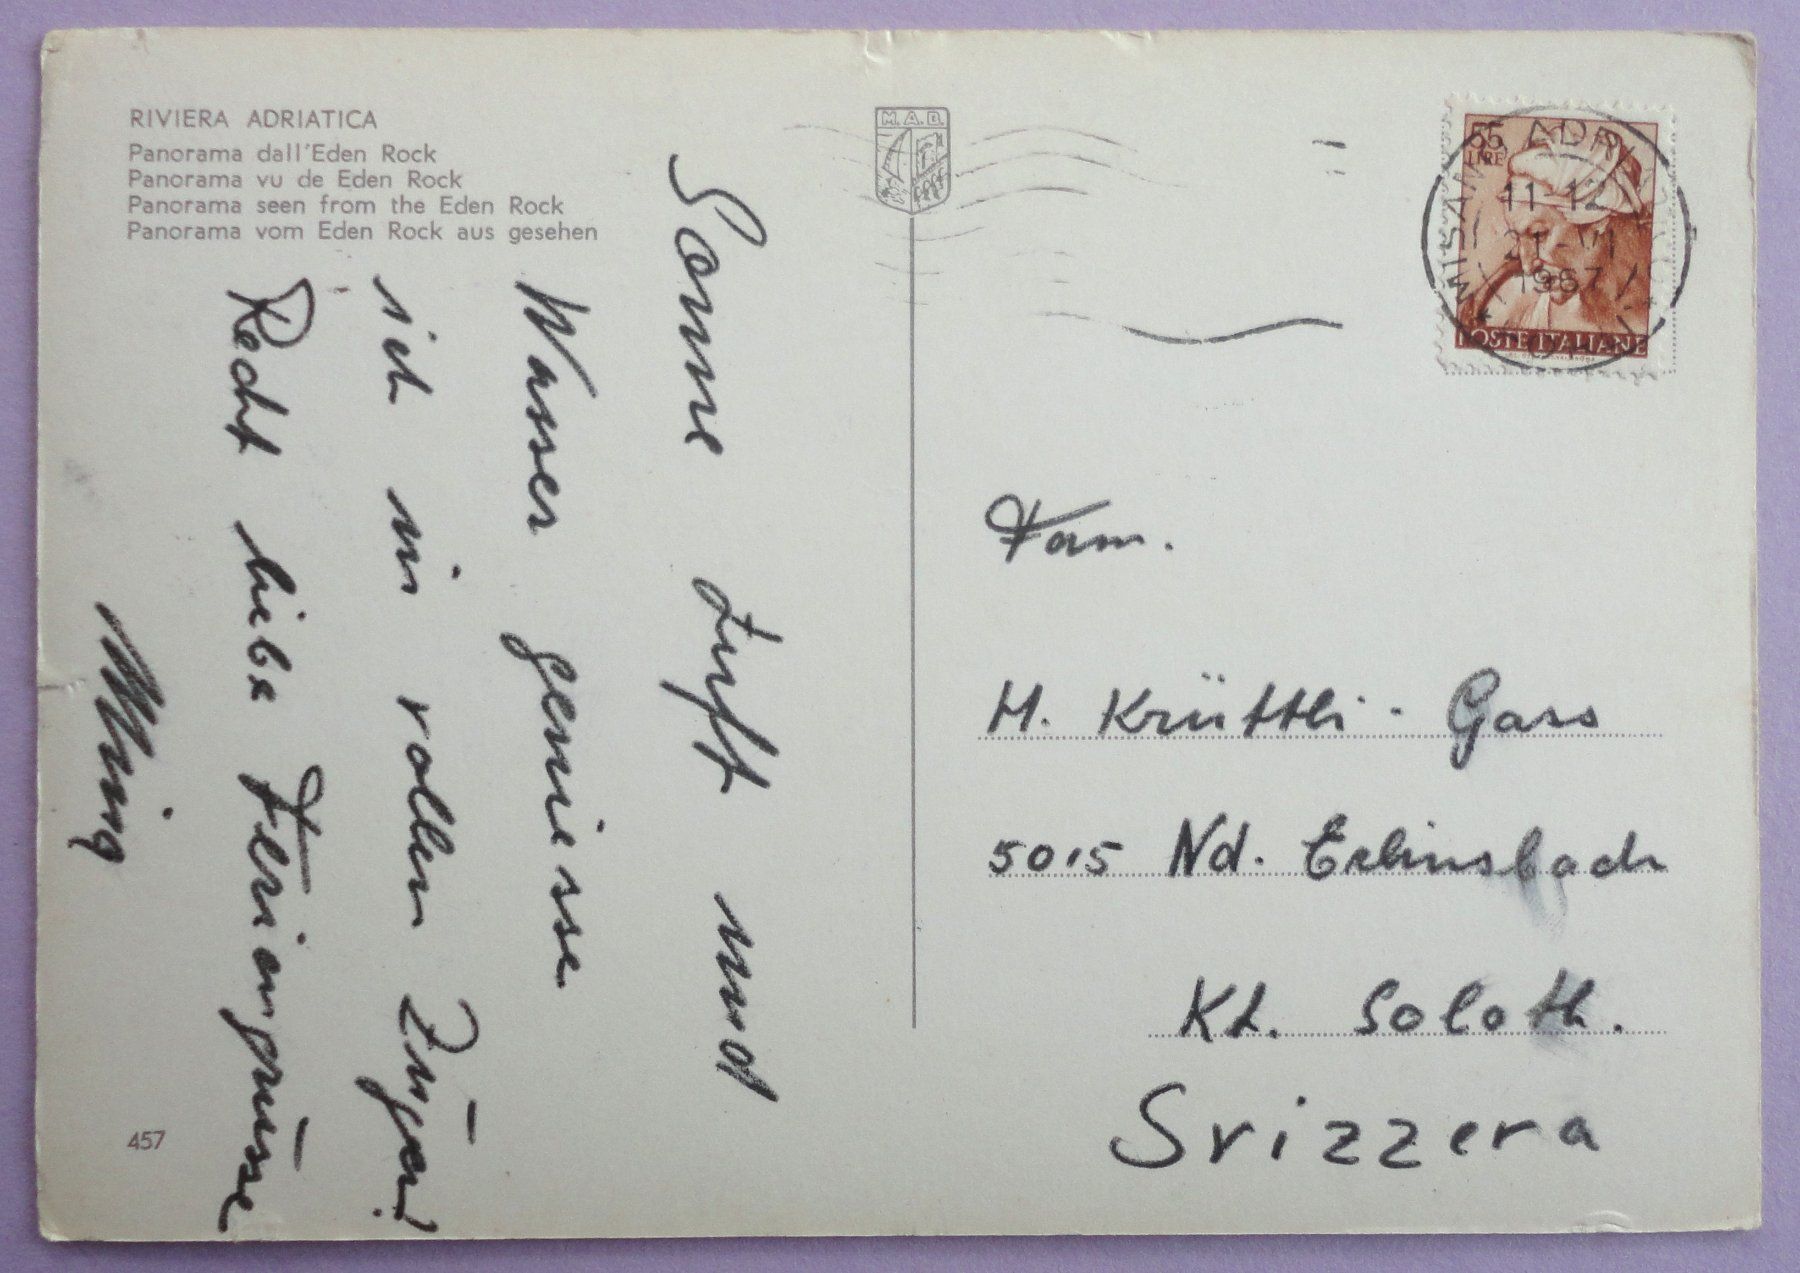 RIVIERA ADRIATICA
Panorama dall'Eden Rock
Panorama vu de Eden Rock
Panorama seen from the Eden Rock
Panorama vom Eden Rock aus gesehen
M.A.B.
55
LIRE
MISANO ADRIATICO
11-12
21-VI
1967
POSTE ITALIANE
Sonne Luft und
Wasser geniesse
ich in vollen Zügen!
Recht liebe Feriengrüsse
Fam.
H. Krüttli-Gass
5015 Nd. Erlinsbach
Kt. Soloth.
Svizzera
457